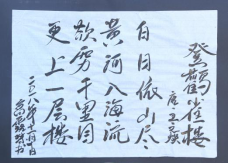 登鹳雀楼
唐 王之涣
白日依山尽
黄河入海流
欲穷千里目
更上一层楼
二〇一八年十一月